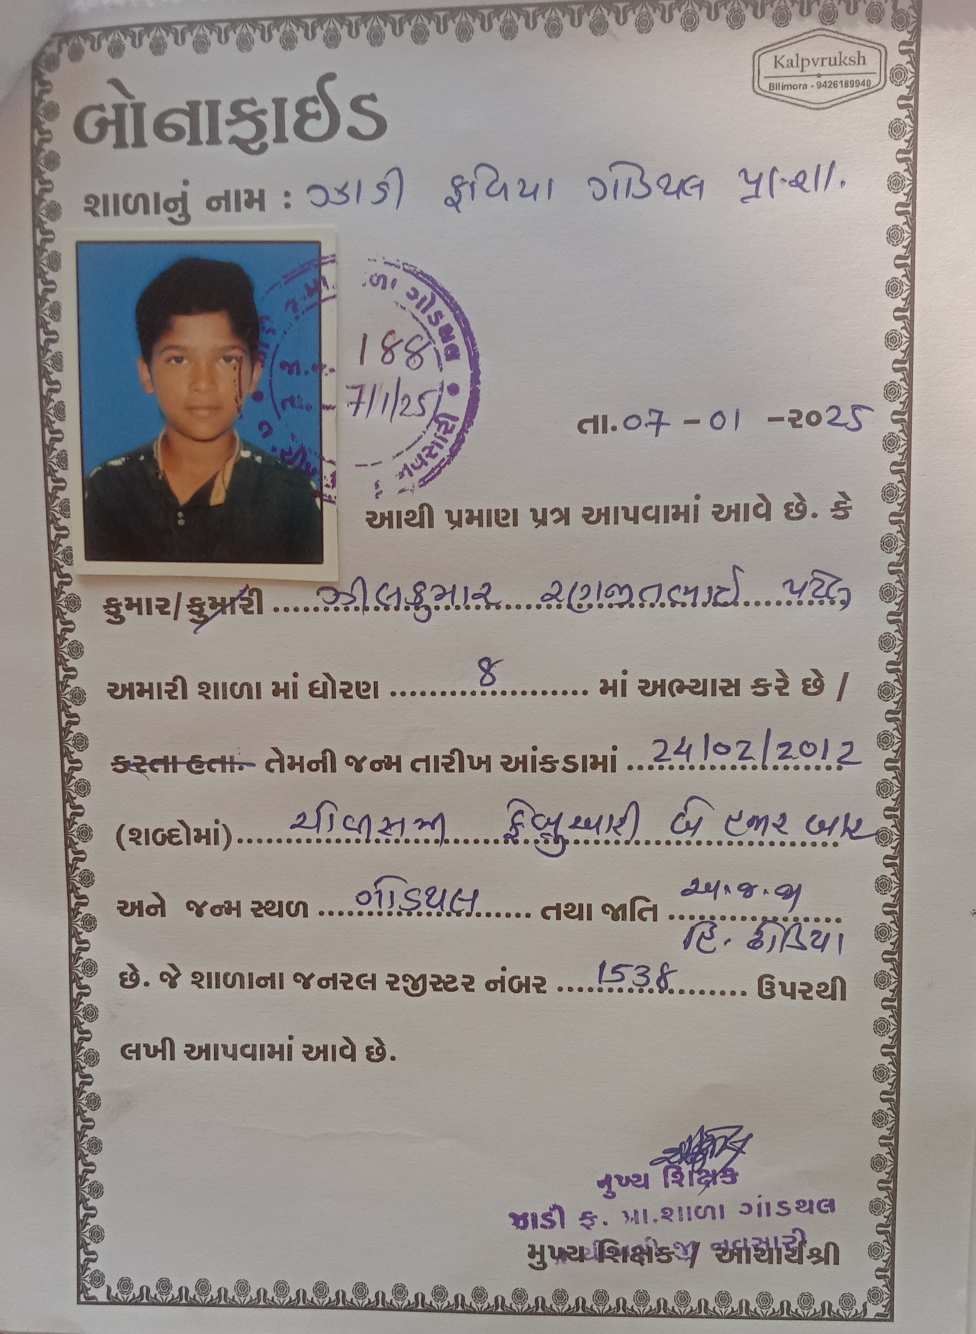 Kalpvruksh
Bilimora - 9426189940
બોનાફાઈડ
શાળાનું નામ : ઝાડી ફળિયા ગોડથલ પ્રા.શા.
188
7/1/25
ગોડથલ
નવસારી
તા.07 - 01 - ૨૦25
આથી પ્રમાણ પત્ર આપવામાં આવે છે. કે
કુમાર/કુમારી ઝીલકુમાર રણજીતભાઈ પટેલ
અમારી શાળા માં ધોરણ 8 માં અભ્યાસ કરે છે /
કરતા હતા. તેમની જન્મ તારીખ આંકડામાં 24/02/2012
(શબ્દોમાં) ચોવીસમી ફેબ્રુઆરી બે હજાર બાર
અને જન્મ સ્થળ ગોડથલ તથા જાતિ અ.જ.જા
હિ. ઢોડિયા
છે. જે શાળાના જનરલ રજીસ્ટર નંબર 1538 ઉપરથી
લખી આપવામાં આવે છે.
મુખ્ય શિક્ષક
ઝાડી ફ. પ્રા.શાળા ગોડથલ
જી નવસારી
મુખ્ય શિક્ષક / આચાર્યશ્રી